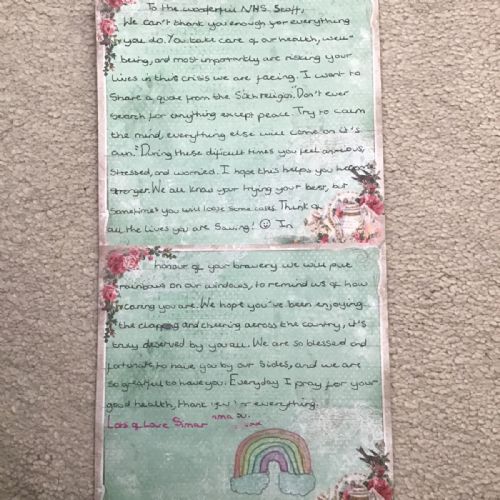 To the wonderful NHS Staff,
We can't thank you enough for everything
you do. You take care of our health, well-
being, and most importantly are risking your
lives in this crisis we are facing. I want to
share a quote from the Sikh religion "Don't ever
search for anything except peace. Try to calm
the mind, everything else will come on it's
own." During these dificult times you feel anxious,
stressed, and worried. I hope this helps you
stronger. We all know your trying your best, but
sometimes you will loose some cases. Think of
all the lives you are saving! In
honour of your bravery we will put
rainbows on our windows, to remind us of how
caring you are. We hope you've been enjoying
the clapping and cheering across the country, it's
truly deserved by you all. We are so blessed and
fortunate, to have you by our sides, and we are
so greatful to have you. Everyday I pray for your
good health, thank you for everything.
Lots of Love Simar